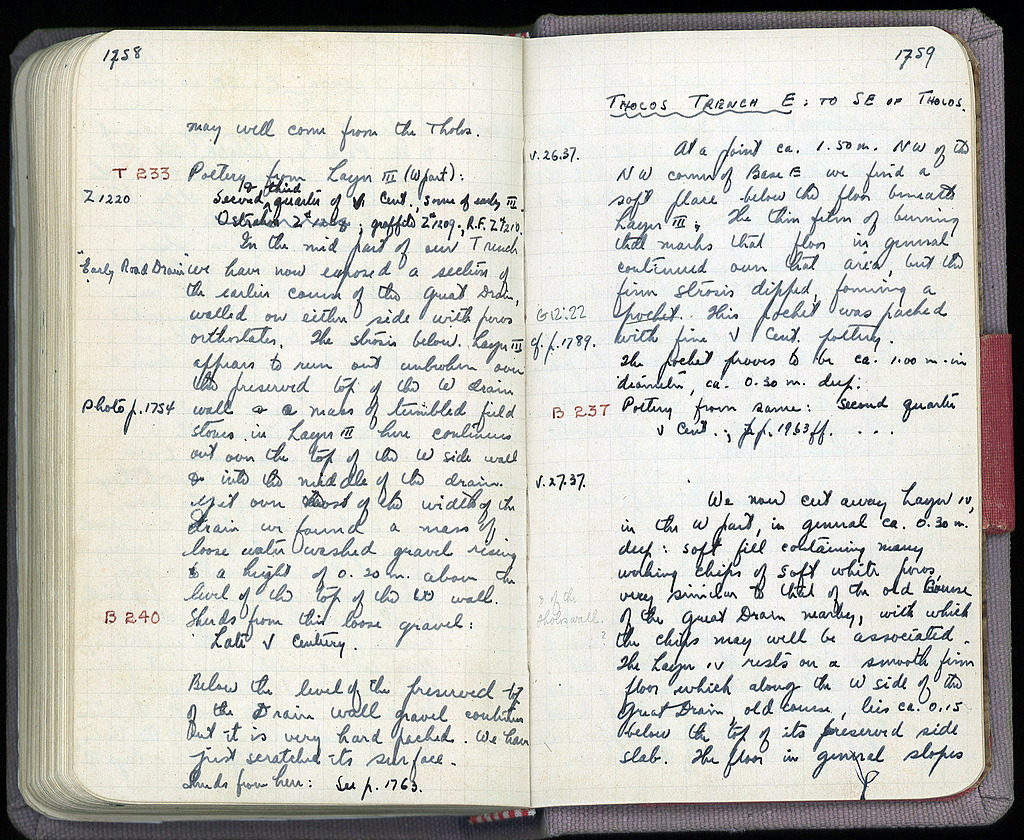 1758
may well come from the Tholos.
T 233 Pottery from Layer III (W part):
& third
Z 1220 Second quarter of V Cent., some of early IV.
Ostrakon Z 1208; graffito Z 1209. R.F. Z 1210.
In the mid part of our Trench
"Early Road Drain" we have now exposed a section of
the earlier course of the Great Drain,
walled on either side with poros
orthostates. The strosis below Layer III
appears to run out unbroken over
the preserved top of the W drain
Photo p. 1754 wall & a mass of tumbled field
stones in Layer III here continues
out over the top of the W side wall
& into the middle of the drain.
Yet over most of the width of the
Drain we found a mass of
loose water washed gravel rising
to a height of 0.20 m. above the
level of the top of the W wall.
B 240 Sherds from this loose gravel:
Late V Century.
Below the level of the preserved top
of the Drain wall gravel continues
but it is very hard packed. We have
just scratched its surface.
Sherds from here: See p. 1763.
1759
THOLOS TRENCH E: TO SE OF THOLOS.
V.26.37. At a point ca. 1.50 m. NW of the
NW corner of Base E we find a
soft place below the floor beneath
Layer III; The thin film of burning
that marks that floor in general
continued over that area, but the
firm strosis dipped, forming a
G12:22 pocket. This pocket was packed
cf. p. 1789. with fine V Cent. pottery.
The pocket proves to be ca. 1.00 m. in
diameter, ca. 0.30 m. deep.
B 237 Pottery from same: Second quarter
V Cent.; pp. 1963 ff. . . .
V.27.37.
We now cut away Layer IV,
in the W part, in general ca. 0.30 m.
deep: soft fill containing many
working chips of soft white poros,
& of the very similar to that of the old Course
Tholos wall. of the Great Drain nearby, with which
? the chips may well be associated.
The Layer IV rests on a smooth firm
floor which along the W side of the
Great Drain, old course, lies ca. 0.15
below the top of its preserved side
slab. The floor in general slopes